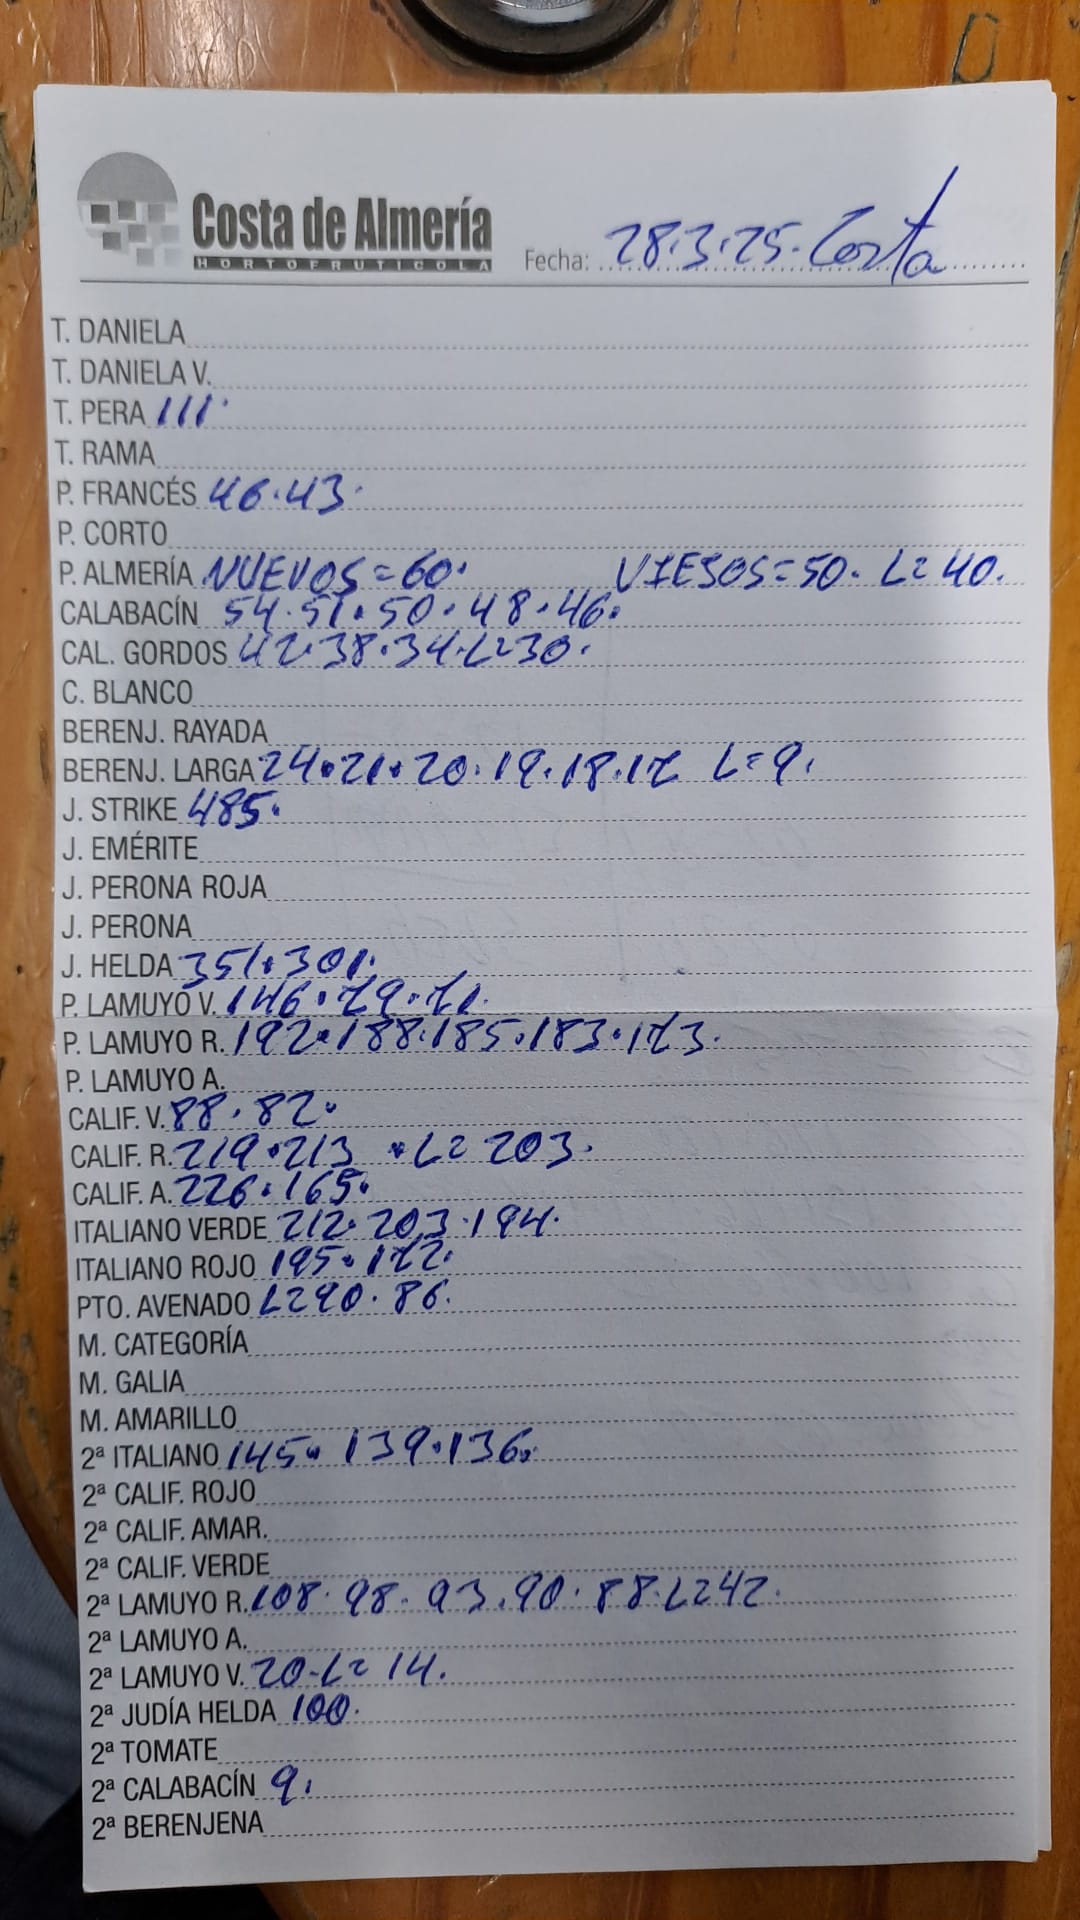 Costa de Almería
HORTOFRUTICOLA
Fecha: 28.3.25. Costa
T. DANIELA
T. DANIELA V.
T. PERA 111.
T. RAMA
P. FRANCÉS 46.43.
P. CORTO
P. ALMERÍA NUEVOS=60. VIEJOS=50. L=40.
CALABACÍN 54.51.50.48.46.
CAL. GORDOS 42.38.34.L=30.
C. BLANCO
BERENJ. RAYADA
BERENJ. LARGA 24.21.20.19.18.17 L=9.
J. STRIKE 485.
J. EMÉRITE
J. PERONA ROJA
J. PERONA
J. HELDA 351.301.
P. LAMUYO V. 146.79.71.
P. LAMUYO R. 192.188.185.183.173.
P. LAMUYO A.
CALIF. V. 88.82.
CALIF. R. 219.213 .L=203.
CALIF. A. 226.165.
ITALIANO VERDE 212.203.194.
ITALIANO ROJO 195.172.
PTO. AVENADO L=90.86.
M. CATEGORÍA
M. GALIA
M. AMARILLO
2ª ITALIANO 145.139.136.
2ª CALIF. ROJO
2ª CALIF. AMAR.
2ª CALIF. VERDE
2ª LAMUYO R. 108.98.93.90.88.L=42.
2ª LAMUYO A.
2ª LAMUYO V. 20.L=14.
2ª JUDÍA HELDA 100.
2ª TOMATE
2ª CALABACÍN 9.
2ª BERENJENA